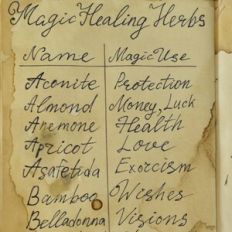 Magic Healing Herbs
Name Magic Use
Aconite Protection
Almond Money, Luck
Anemone Health
Apricot Love
Asafetida Exorcism
Bamboo Wishes
Belladonna Visions